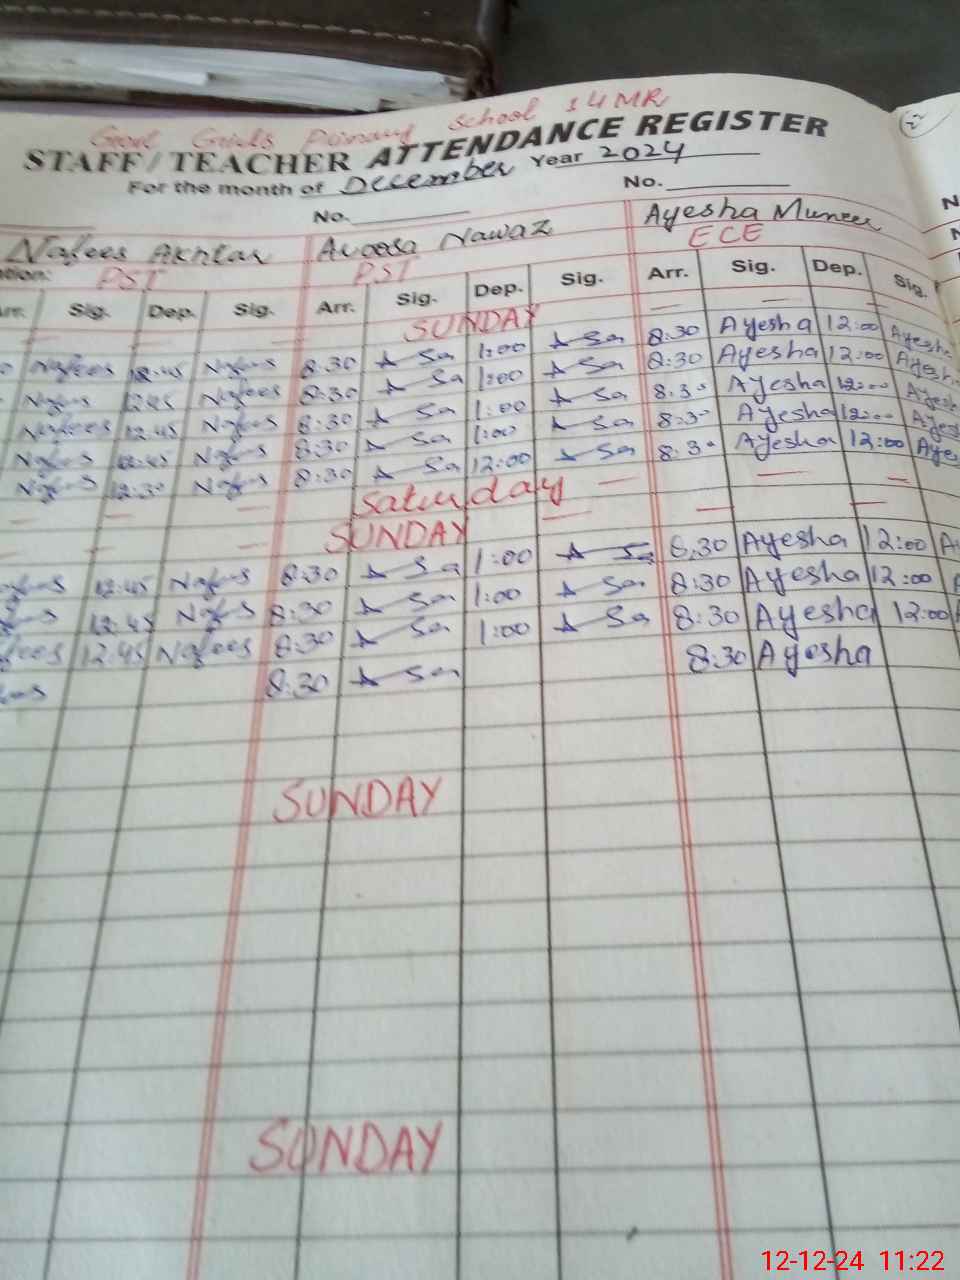 Govt Girls Primary School 14 MR
STAFF / TEACHER ATTENDANCE REGISTER
For the month of December Year 2024
No. No.
Nafees Akhtar Aroosa Nawaz Ayesha Muneer
PST PST ECE
Arr. Sig. Dep. Sig. Arr. Sig. Dep. Sig. Arr. Sig. Dep. Sig.
SUNDAY
Nafees 12:45 Nafees 8:30 1:00 8:30 Ayesha 12:00 Ayesha
Nafees 12:45 Nafees 8:30 1:00 8:30 Ayesha 12:00 Ayesha
Nafees 12:45 Nafees 8:30 1:00 8:30 Ayesha 12:00 Ayesh
Nafees 12:45 Nafees 8:30 1:00 8:30 Ayesha 12:00 Ayes
Nafees 12:30 Nafees 8:30 12:00 8:30 Ayesha 12:00 Aye
Saturday
SUNDAY
12:45 Nafees 8:30 1:00 8:30 Ayesha 12:00 A
12:45 Nafees 8:30 1:00 8:30 Ayesha 12:00
fees 12:45 Nafees 8:30 1:00 8:30 Ayesha 12:00
8:30 8:30 Ayesha
SUNDAY
SUNDAY
12-12-24 11:22